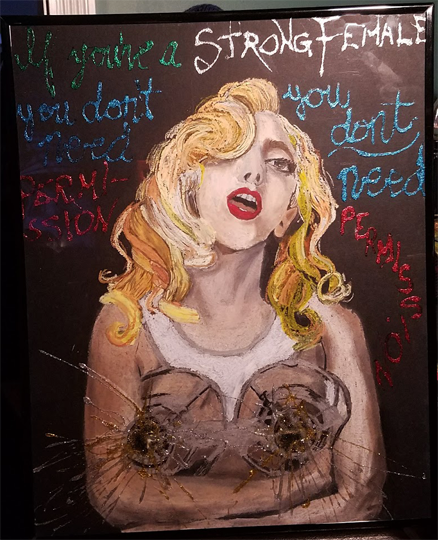 If you're a STRONG FEMALE
you don't
need
PERMI-
SSION
you
don't
need
PERMISSION